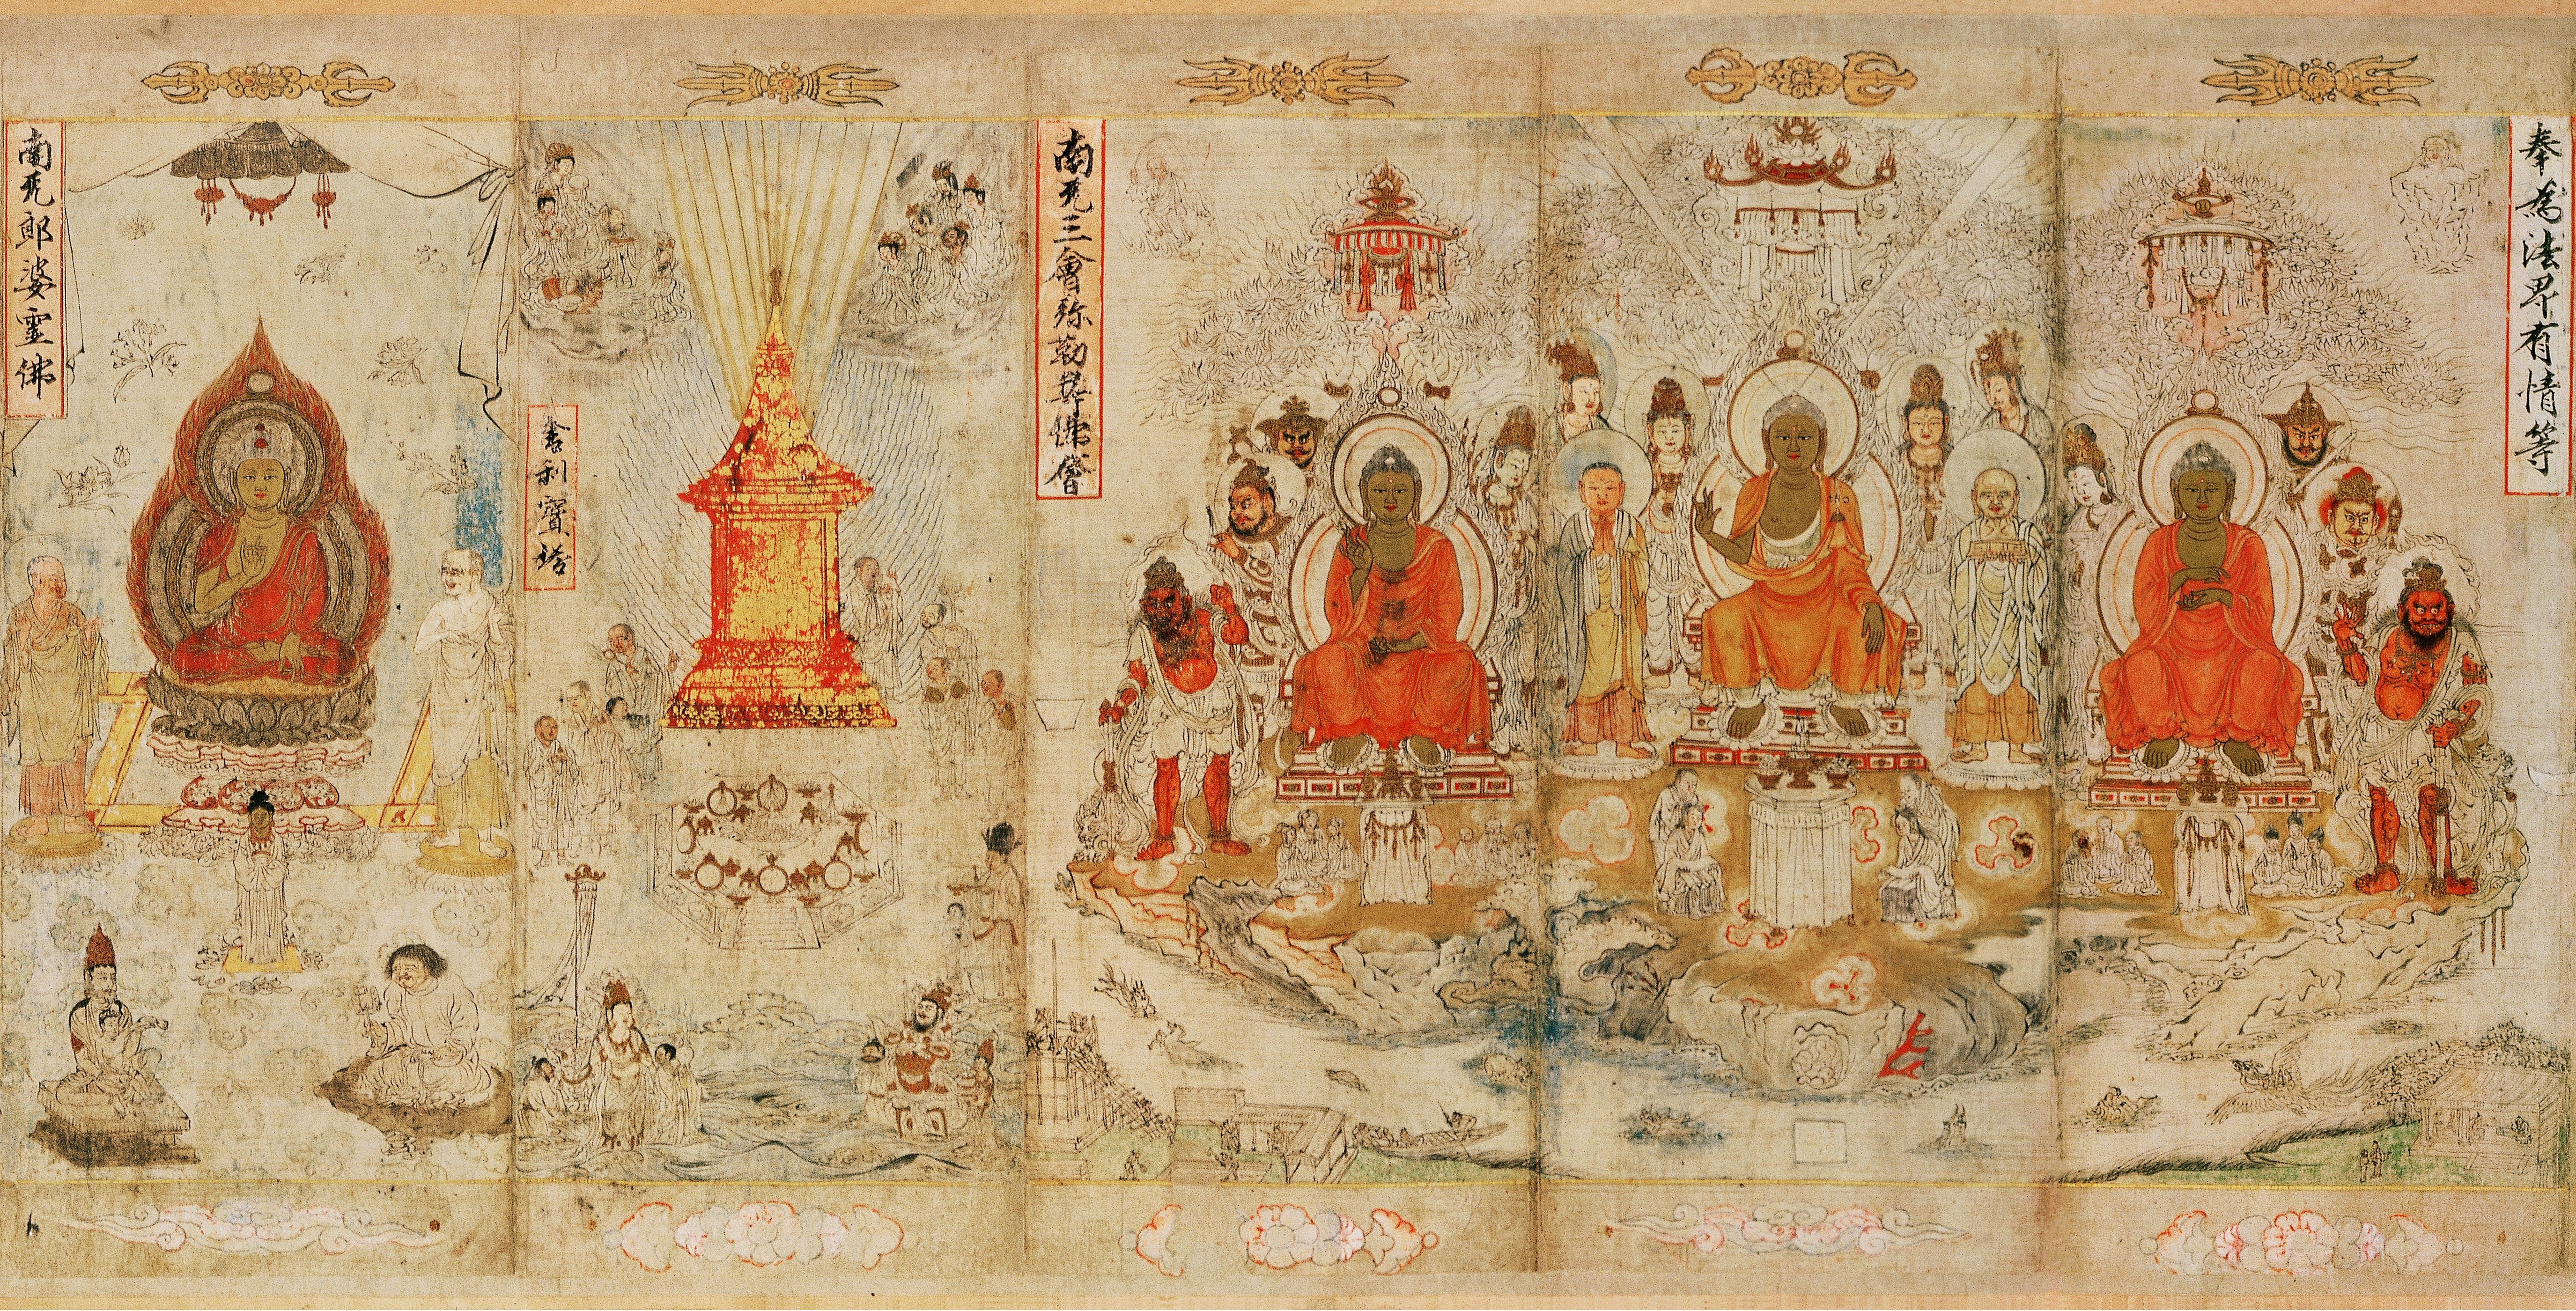 奉為法界有情等
南无三會弥勒尊佛會
舍利寳塔
南无郎婆靈佛